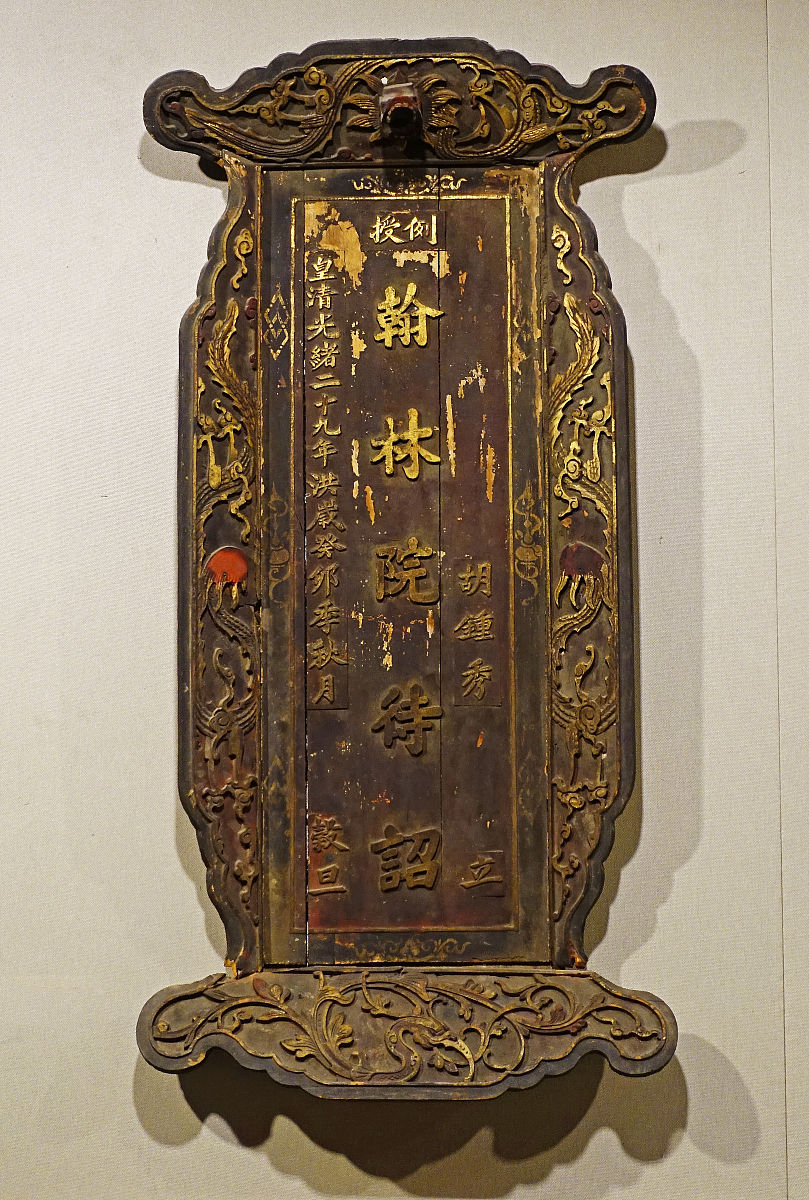 胡鍾秀立
例授
翰林院待詔
皇清光緒二十九年洪歲癸卯季秋月穀旦